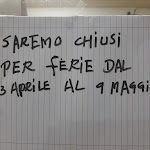 SAREMO CHIUSI
PER FERIE DAL
3 APRILE AL 9 MAGGI